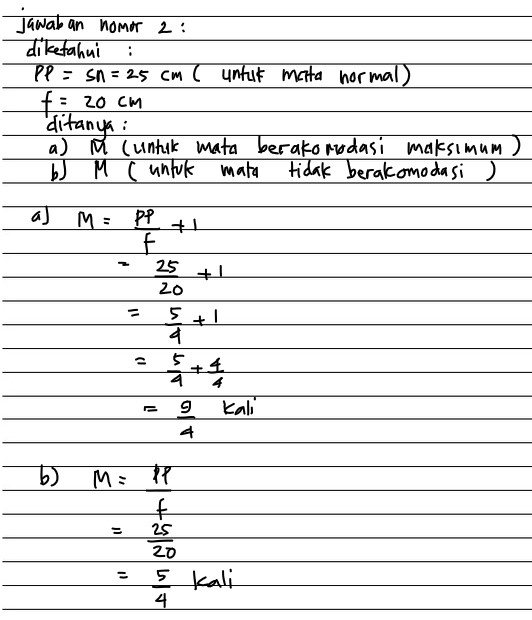 jawaban nomor 2 :
diketahui :
PP = sn = 25 cm ( untuk mata normal )
f = 20 cm
ditanya :
a) M (untuk mata berakomodasi maksimum )
b) M ( untuk mata tidak berakomodasi )
a) M = PP/f + 1
= 25/20 + 1
= 5/4 + 1
= 5/4 + 4/4
= 9/4 kali
b) M = PP/f
= 25/20
= 5/4 kali